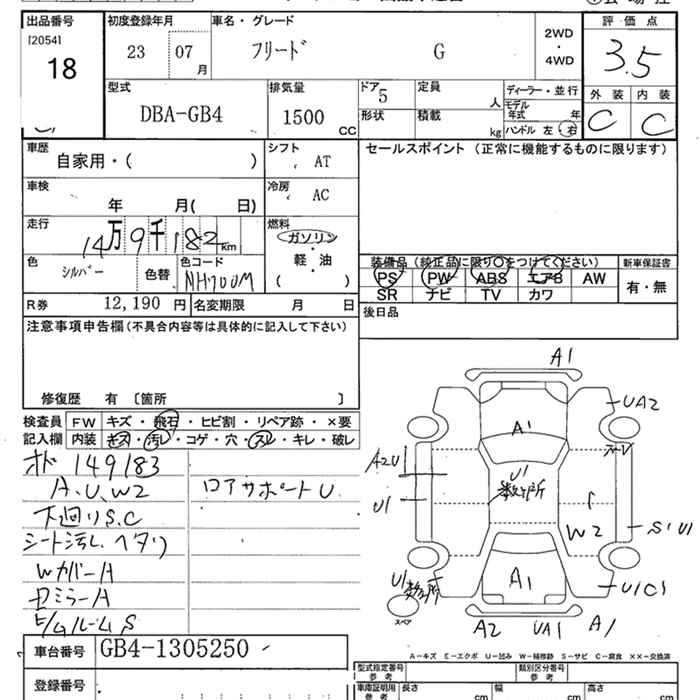 出品番号 初度登録年月 車名・グレード 2WD・4WD 評価点
[2054]
18 23 07月 フリード G 3.5
型式 排気量 ドア 5 定員 人 ディーラー・並行 外装 内装
DBA-GB4 1500 CC 形状 積載 kg モデル年式 年 C C
ハンドル 左 右
車歴 シフト セールスポイント (正常に機能するものに限ります)
自家用・( ) AT
車検 冷房
年 月( 日) AC
走行 燃料
14万9千182km ガソリン
色 シルバー 色替 色コード NH700M 軽・油
( )
装備品 (純正品に限り○をつけてください) 新車保証書
PS PW ABS エアB AW 有・無
SR ナビ TV カワ
R券 12,190 円 名変期限 月 日 後日品
注意事項申告欄(不具合内容等は具体的に記入して下さい)
修復歴 有 〔箇所 〕
検査員 FW キズ・飛石・ヒビ割・リペア跡・×要
記入欄 内装 キズ・汚レ・コゲ・穴・スレ・キレ・破レ
オド 149183
A.U.W2 ロアサポートU
下廻りS.C
シート汚レ ヘタリ
WカバーA
ロミラーA
E/GルームS
A1
UA2
A1
A2U
U1
U1
数ヶ所
W2
S1 U1
U1
数ヶ所
A1
U1C1
スペア
A2 UA1 A1
A-キズ E-エクボ U-凹み W-補修跡 S-サビ C-腐食 XX-交換済
車台番号 GB4-1305250
型式指定番号 参考 類別区分番号 参考
登録番号 車庫証明用 参考 長さ cm 幅 cm cm